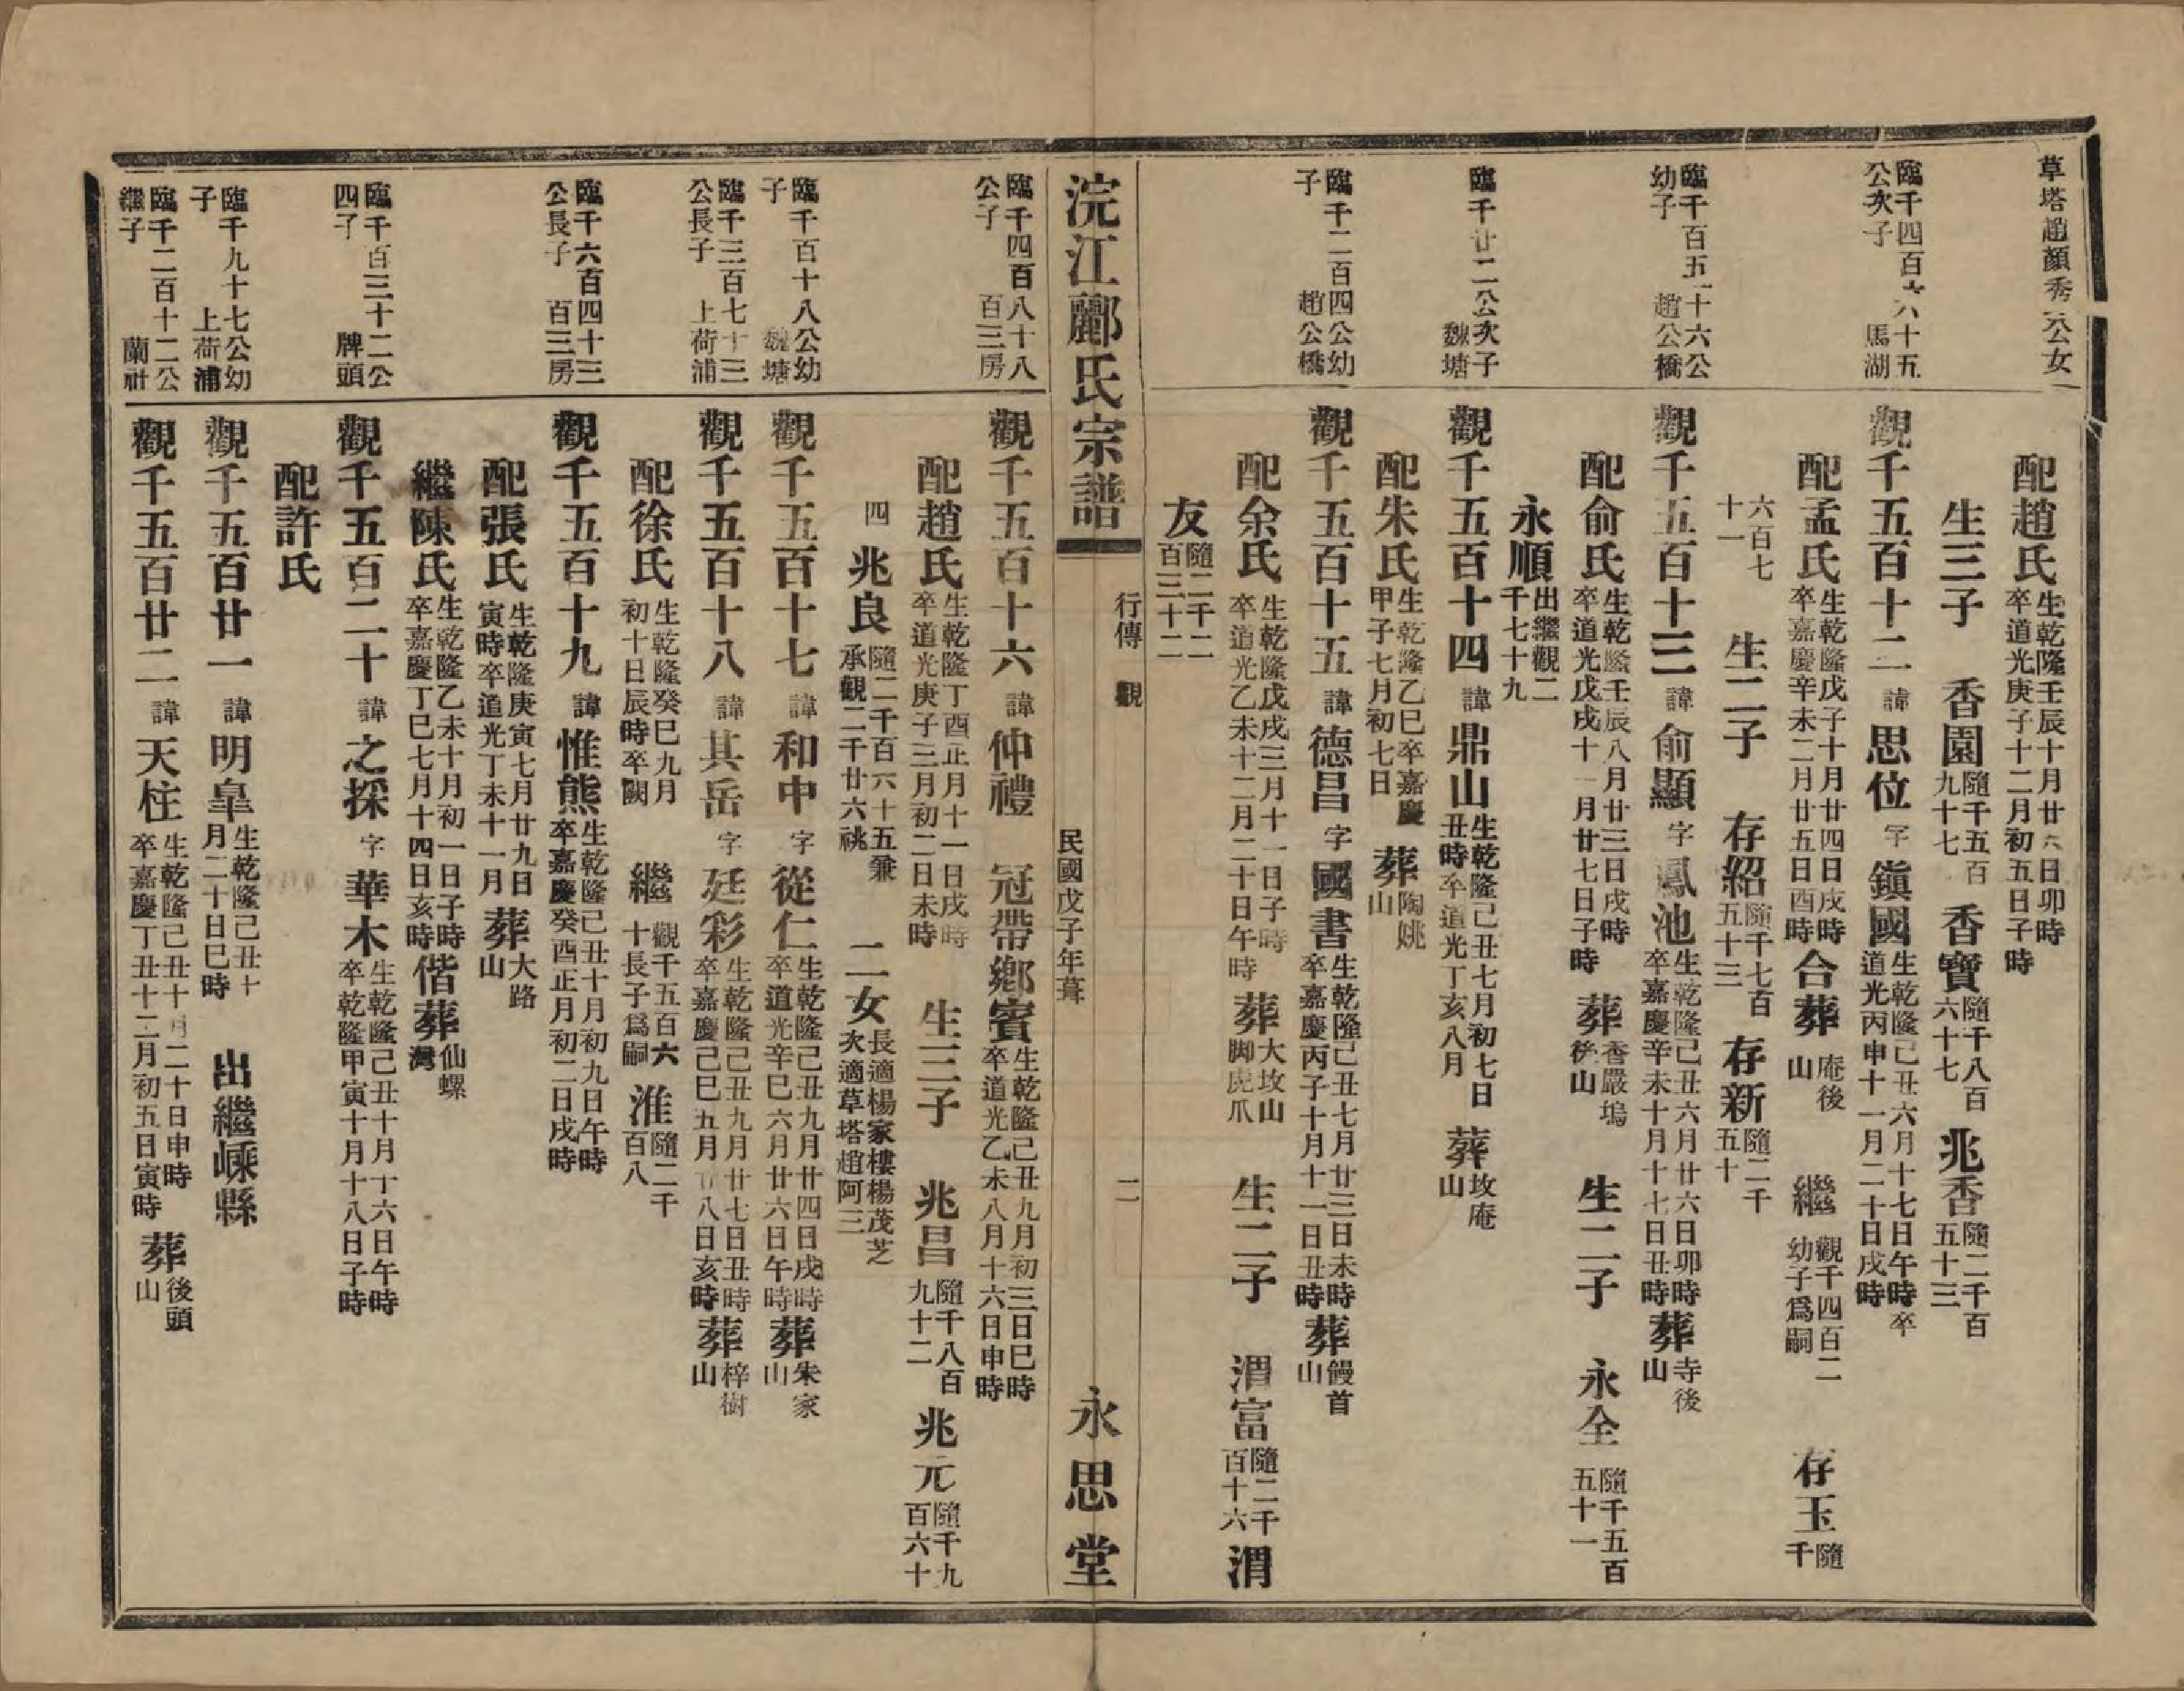 草塔趙顏秀公女
配趙氏生乾隆壬辰十月廿六日卯時卒道光庚子十二月初五日子時
生三子 香園隨千五百九十七 香寶隨千八百六十七 兆香隨二千百五十三
臨千四百六十五公次子 馬湖
觀千五百十二 諱思位 字鎭國生乾隆己丑六月十七日午時卒道光丙申十一月二十日戌時
配孟氏生乾隆戊子十月廿四日戌時卒嘉慶辛未二月廿五日酉時合葬庵後山 繼觀千四百二幼子爲嗣 存玉隨千
六百七十一 生二子 存紹隨千七百五十三 存新隨二千五十
臨千百五十六公幼子 趙公橋
觀千五百十三 諱俞顯 字鳳池生乾隆己丑六月廿六日卯時卒嘉慶辛未十月十七日丑時葬寺後山
配俞氏生乾隆壬辰八月廿三日戌時卒道光戊戌十一月廿七日子時 葬香嚴塢後山 生二子 永全隨千五百五十一
永順出繼觀二千七十九
臨千廿二公次子 魏塘
觀千五百十四 諱鼎山生乾隆己丑七月初七日丑時卒道光丁亥八月 葬坟庵山
配朱氏生乾隆乙巳卒嘉慶甲子七月初七日 葬陶姚山
臨千二百四公幼子 趙公橋
觀千五百十五 諱德昌 字國書生乾隆己丑七月廿三日未時卒嘉慶丙子十月十一日丑時葬饅首山
配余氏生乾隆戊戌三月十一日子時卒道光乙未十二月二十日午時 葬大坟山脚虎爪 生二子 渭富隨二千百十六 渭
友隨二千二百三十二
浣江酈氏宗譜 行傳 觀 二 民國戊子年葺 永思堂
臨千四百八十八公子 百三房
觀千五百十六 諱仲禮 冠帶鄉賓生乾隆己丑九月初三日巳時卒道光乙未八月十六日申時
配趙氏生乾隆丁酉正月十一日戌時卒道光庚子三月初二日未時 生三子 兆昌隨千八百九十二 兆元隨千九百六十
四 兆良隨二千百六十五兼承觀二千廿六祧 二女長適楊家樓楊茂芝次適草塔趙阿三
臨千百十八公幼子 魏塘
觀千五百十七 諱和中 字從仁生乾隆己丑九月廿四日戌時卒道光辛巳六月廿六日午時葬朱家山
臨千三百七十三公長子 上荷浦
觀千五百十八 諱其岳 字廷彩生乾隆己丑九月廿七日丑時卒嘉慶己巳五月廿八日亥時葬梓樹山
配徐氏生乾隆癸巳九月初十日辰時卒闕 繼觀千五百六十長子爲嗣 淮隨二千百八
臨千六百四十三公長子 百三房
觀千五百十九 諱惟熊生乾隆己丑十月初九日午時卒嘉慶癸酉正月初二日戌時
配張氏生乾隆庚寅七月廿九日寅時卒道光丁未十一月葬大路山
繼陳氏生乾隆乙未十月初一日子時卒嘉慶丁巳七月十四日亥時偕葬仙螺灣
臨千百三十二公四子 牌頭
觀千五百二十 諱之採 字華木生乾隆己丑十月十六日午時卒乾隆甲寅十月十八日子時
配許氏
臨千九十七公幼子 上荷浦
觀千五百廿一 諱明皐生乾隆己丑十月二十日巳時 出繼嵊縣
臨千二百十二公繼子 蘭社
觀千五百廿二 諱天柱生乾隆己丑十月二十日申時卒嘉慶丁丑十二月初五日寅時 葬後頭山